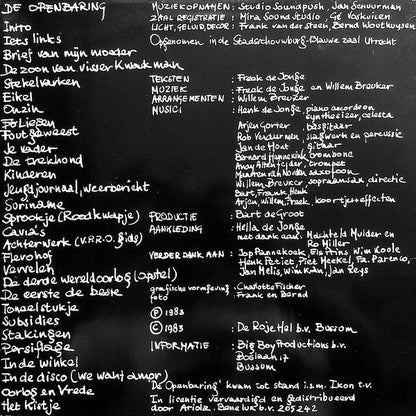 DE OPENBARING
Intro
Iets links
Brief van mijn moeder
De zoon van visser Kwakman
Stekelvarken
Eikel
Onzin
Foliezen
Fout geweest
Je vader
De trekhond
Kinderen
Jeugdjournaal, weerbericht
Suriname
Sprookje (Roodkapje)
Cavia's
Achterwerk (V.P.R.O. gids)
Flevohof
Vervelen
De derde wereldoorlog (apstel)
De eerste de beste
Toneelstukje
Subsidies
Stakingen
Persiflage
In de winkel
In de disco (we want amor)
Oorlog en Vrede
Het Kistje
MUZIEKOPNAMEN : Studio Soundpush, Jan Schuurman
ZAAL REGISTRATIE : Mira Soundstudio, Gé Voskuilen
LICHT, GELUID, DECOR : Frank van der Steen, Bernd Wouthuysen
Opgenomen in de Stadsschouwburg - Blauwe zaal Utrecht
TEKSTEN : Freek de Jonge
MUZIEK : Freek de Jonge en Willem Breuker
ARRANGEMENTEN : Willem Breuker
MUSICI : Henk de Jonge, piano accordeon
synthesizer, celesta
Arjen Gorter, basgitaar
Rob Verdurmen, slagwerk en percussie
Jan de Hont, gitaar
Bernard Hunnekink, trombone
Andy Altenfelder, trompet
Maarten van Norden, saxofoon
Willem Breuker, sopraansax, directie
Bart, Frank, Henk
Arjen, Willem, Freek, koortje + effecten
PRODUCTIE : Bart de Groot
AANKLEDING : Hella de Jonge
met dank aan: Machteld Mulder en
Ro Miller
VERDER DANK AAN : Jop Pannekoek, Els Prins, Wim Koole
Henk Petiet, Piet Meekel, Fa. Parten Co,
Jan Melis, Wim Kan, Jan Reys
grafische vormgeving : Charlotte Fischer
foto : Frank en Bernd
Ⓟ 1983
© 1983 : De Roje Hel b.v. Bussum
INFORMATIE : Big Boy Productions b.v.
Boslaan 17
Bussum
'De Openbaring' kwam tot stand i.s.m. Ikon t.v.
In licentie vervaardigd en gedistribueerd
door Ariola. Benelux b.v. 205242